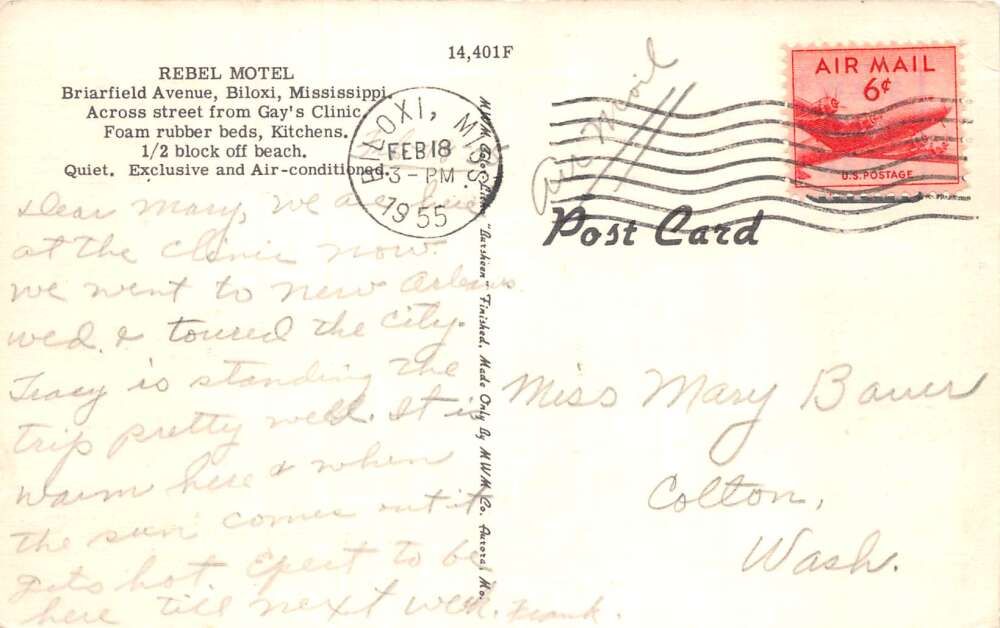 14,401F
REBEL MOTEL
Briarfield Avenue, Biloxi, Mississippi.
Across street from Gay's Clinic
Foam rubber beds, Kitchens.
1/2 block off beach.
Quiet. Exclusive and Air-conditioned.
BILOXI, MISS.
FEB 18
3 - PM
1955
Air Mail
AIR MAIL
6¢
U.S. POSTAGE
Post Card
Dear Mary, We are here
at the clinic now.
We went to New Orleans
wed. & toured the city.
Tracy is standing the
trip pretty well. It is
warm here & when
the sun comes out it
gets hot. Epect to be
here till next week. Frank.
MWM Color-Litho "Bursheen" Finished, Made Only By MWM Co. Aurora, Mo.
Miss Mary Bauer
Colton,
Wash.